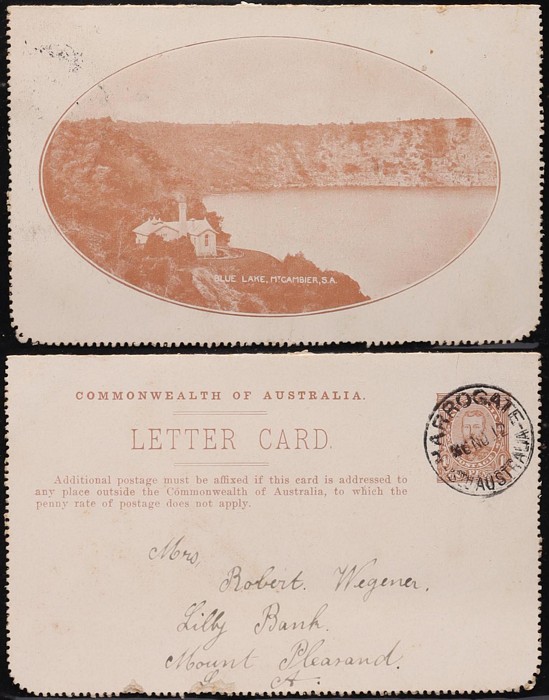 BLUE LAKE, MT GAMBIER, S.A.
COMMONWEALTH OF AUSTRALIA.
LETTER CARD.
Additional postage must be affixed if this card is addressed to
any place outside the Commonwealth of Australia, to which the
penny rate of postage does not apply.
HARROGATE
NO 12
STH AUSTRALIA
Mrs,
Robert. Wegener.
Lilly Bank.
Mount Pleasand.
S. A.